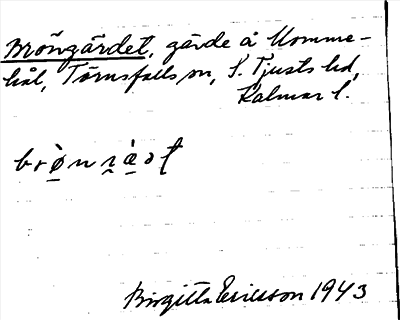 Bröngärdet, gärde å Komme-
hål, Törnsfalls sn, S. Tjusts hd,
Kalmar l.
Birgitta Ericsson 1943